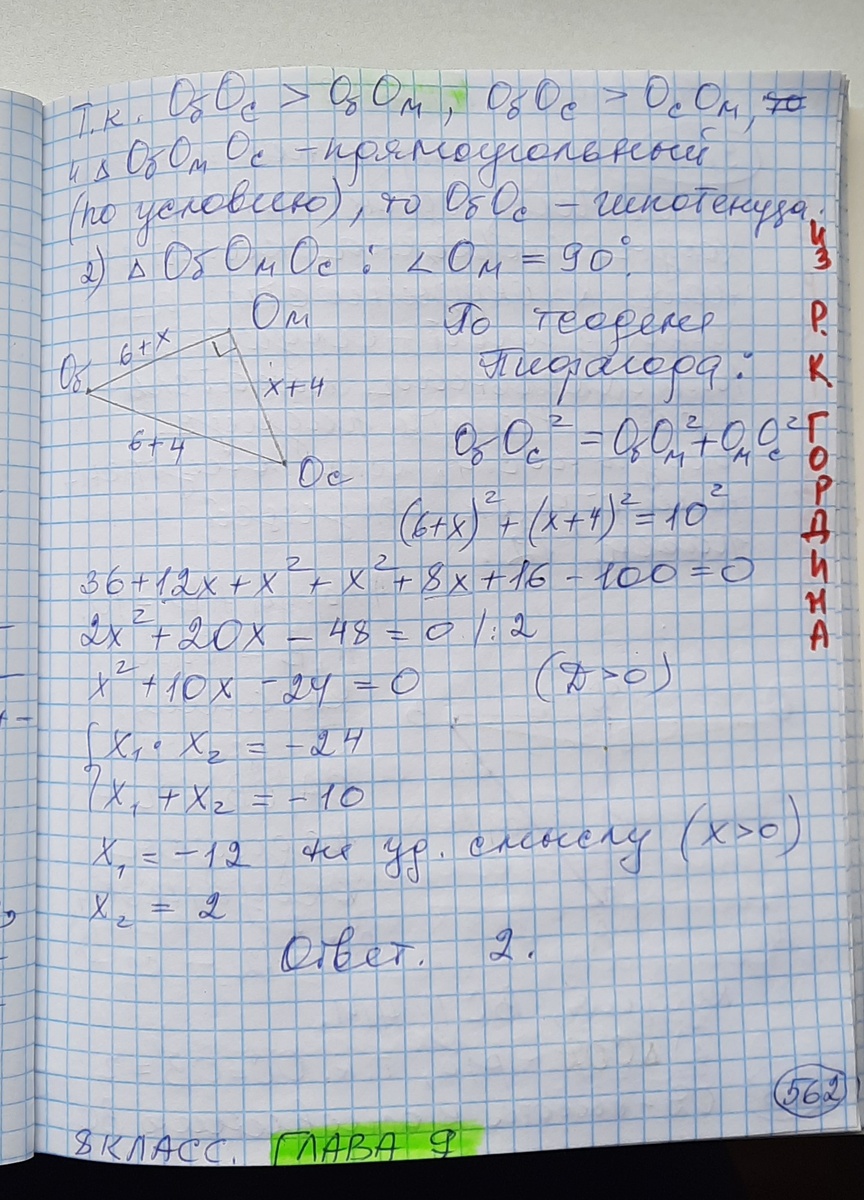 Т.к. OбOс > OбOм, OбOс > OсOм,
и △ OбOмOс – прямоугольный
(по условию), то OбOс – гипотенуза.
2) △ OбOмOс : ∠Oм = 90°.
Oм
Oб
6+x
x+4
6+4
Oс
По теореме
Пифагора:
OбOс² = OбOм² + OмOс²
(6+x)² + (x+4)² = 10²
36+12x+x²+x²+8x+16-100=0
2x²+20x-48=0 /:2
x²+10x-24=0 (D>0)
{x₁·x₂ = -24
x₁+x₂ = -10
x₁ = -12 не уд. смыслу (x>0)
x₂ = 2
Ответ. 2.
562
8 КЛАСС. ГЛАВА 9
ИЗ Р.К ГОРДИНА